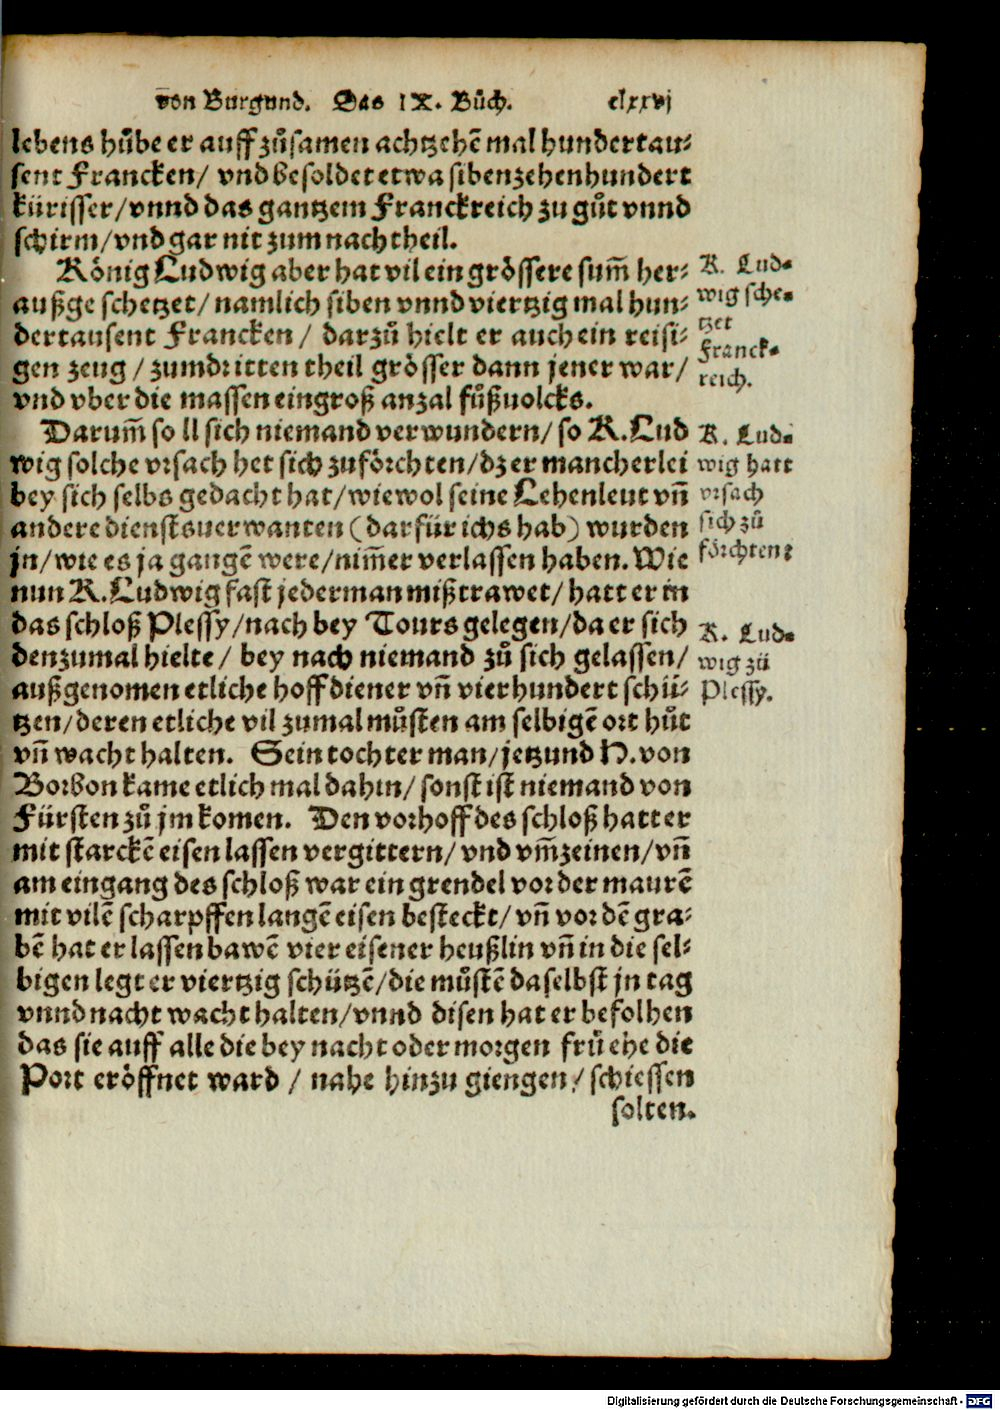 von Burgund. Das IX. Bůch. clxxvj
lebens hůbe er auff zůsamen achtzehē mal hundertau⸗
sent Francken/ vnd besoldet etwa sibenzehenhundert
kürisser/vnnd das gantzem Franckreich zu gůt vnnd
schirm/vnd gar nit zum nachtheil.
König Ludwig aber hat vil ein grössere sum̄ her⸗
außgeschetzet/ namlich siben vnnd viertzig mal hun⸗
dertausent Francken/ darzů hielt er auch ein reisi⸗
gen zeug/ zum dritten theil grösser dann jener war/
vnd vber die massen ein groß anzal fůßuolcks.
K. Lud⸗
wig sche⸗
tzet
Franck⸗
reich.
Darum̄ so ll sich niemand verwundern/ so K. Lud
wig solche vrsach het sich zuförchten/dz er mancherlei
bey sich selbs gedacht hat/wiewol seine Lehenleut vn̄
andere dienstsuerwanten (darfür ichs hab) wurden
jn/wie es ja gangē were/nim̄er verlassen haben. Wie
nun K. Ludwig fast jederman mißtrawet/ hatt er in
das schloß Plessy/nach bey Tours gelegen/da er sich
denzumal hielte/ bey nach niemand zů sich gelassen/
außgenomen etliche hoffdiener vn̄ vierhundert schü⸗
tzen/deren etliche vil zumal můsten am selbigē ort hůt
vn̄ wacht halten. Sein tochter man/jetzund H. von
Borbon kame etlich mal dahin/ sonst ist niemand von
Fürsten zů jm komen. Den vorhoff des schloß hatt er
mit starckē eisen lassen vergittern/ vnd vm̄zeinen/vn̄
am eingang des schloß war ein grendel vor der maurē
mit vilē scharpffen langē eisen besteckt/ vn̄ vor dē gra⸗
bē hat er lassen bawē vier eisener heußlin vn̄ in die sel⸗
bigen legt er viertzig schützē/die můstē daselbst jn tag
vnnd nacht wacht halten/vnnd disen hat er befolhen
das sie auff alle die bey nacht oder morgen frů ehe die
Port eröffnet ward / nahe hinzu giengen/ schiessen
solten.
K. Lud⸗
wig hatt
vrsach
sich zů
förchten
K. Lud⸗
wig zů
Plessy.
Digitalisierung gefördert durch die Deutsche Forschungsgemeinschaft - DFG